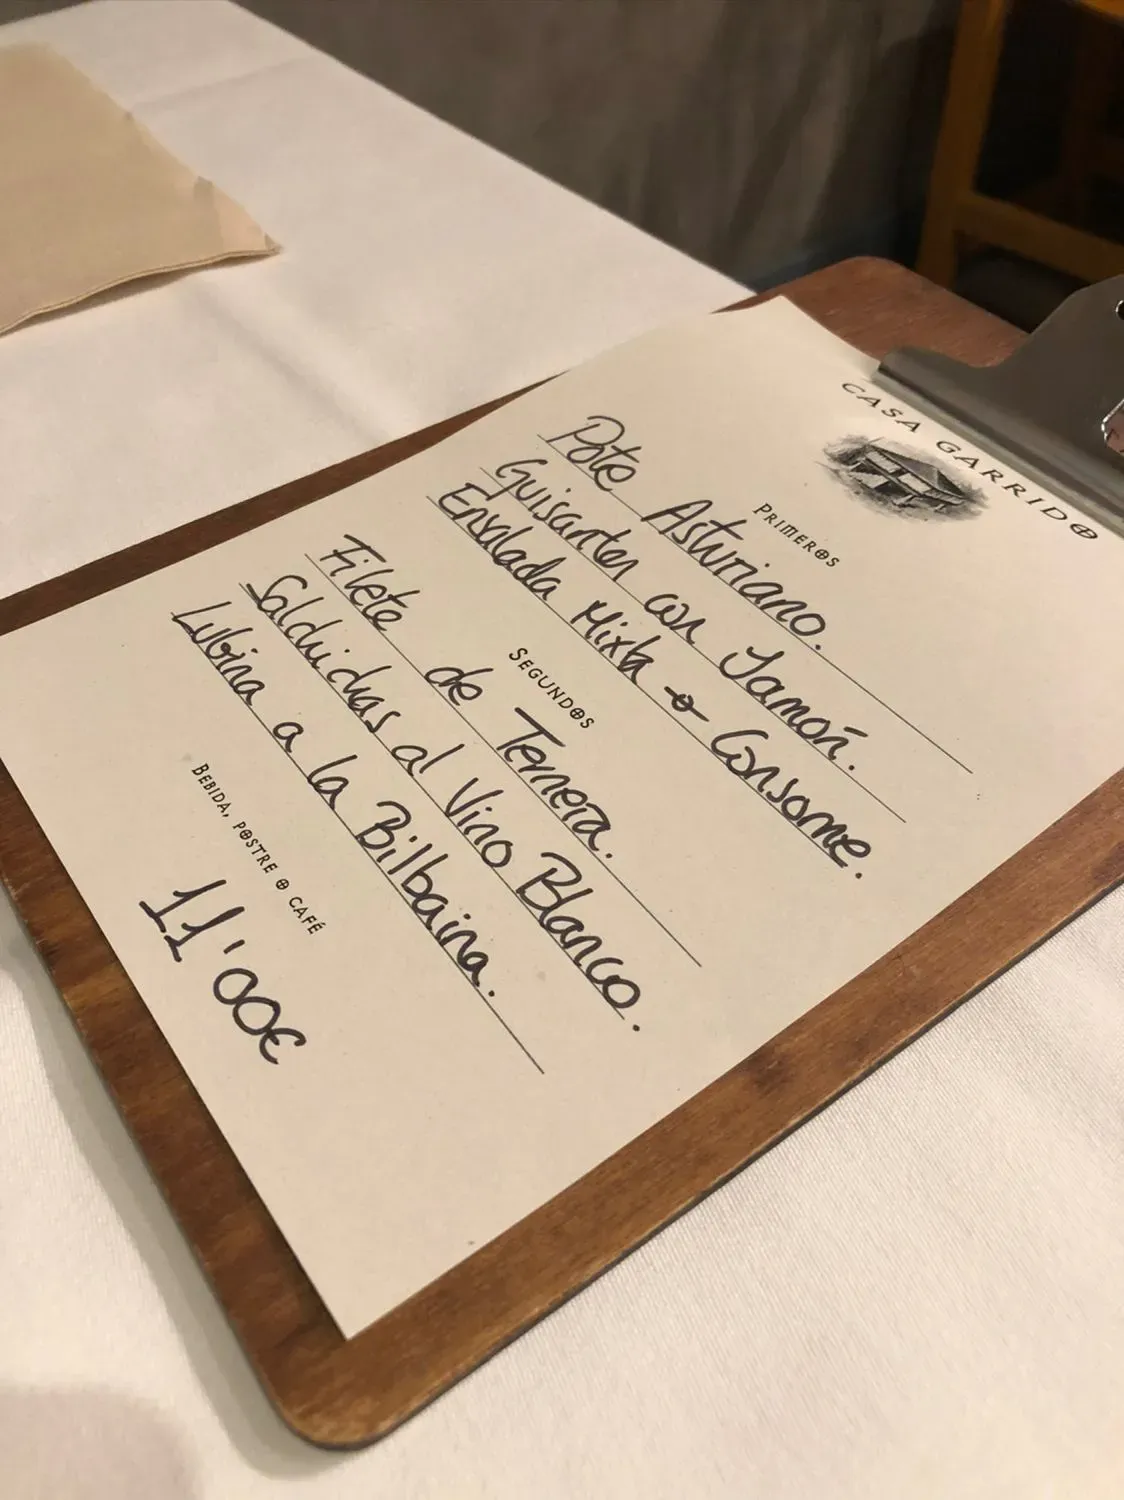 CASA GARRIDO
PRIMEROS
Pote Asturiano.
Guisantes con Jamón.
Ensalada Mixta o Consome.
SEGUNDOS
Filete de Ternera.
Salchichas al Vino Blanco.
Lubina a la Bilbaina.
BEBIDA, POSTRE O CAFÉ
11'00€